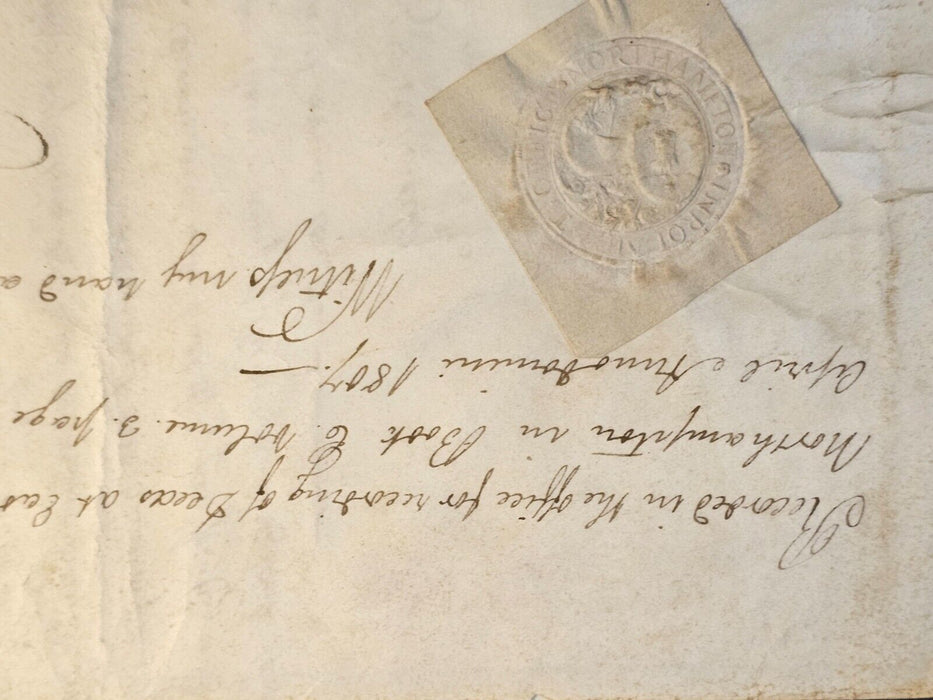 Recorded in the office for recording of Deeds at Eas
Northampton in Book E. Volume. 3. page
April Annodomini 1807.
Witness my hand a
NORTHAMPTON INROLM